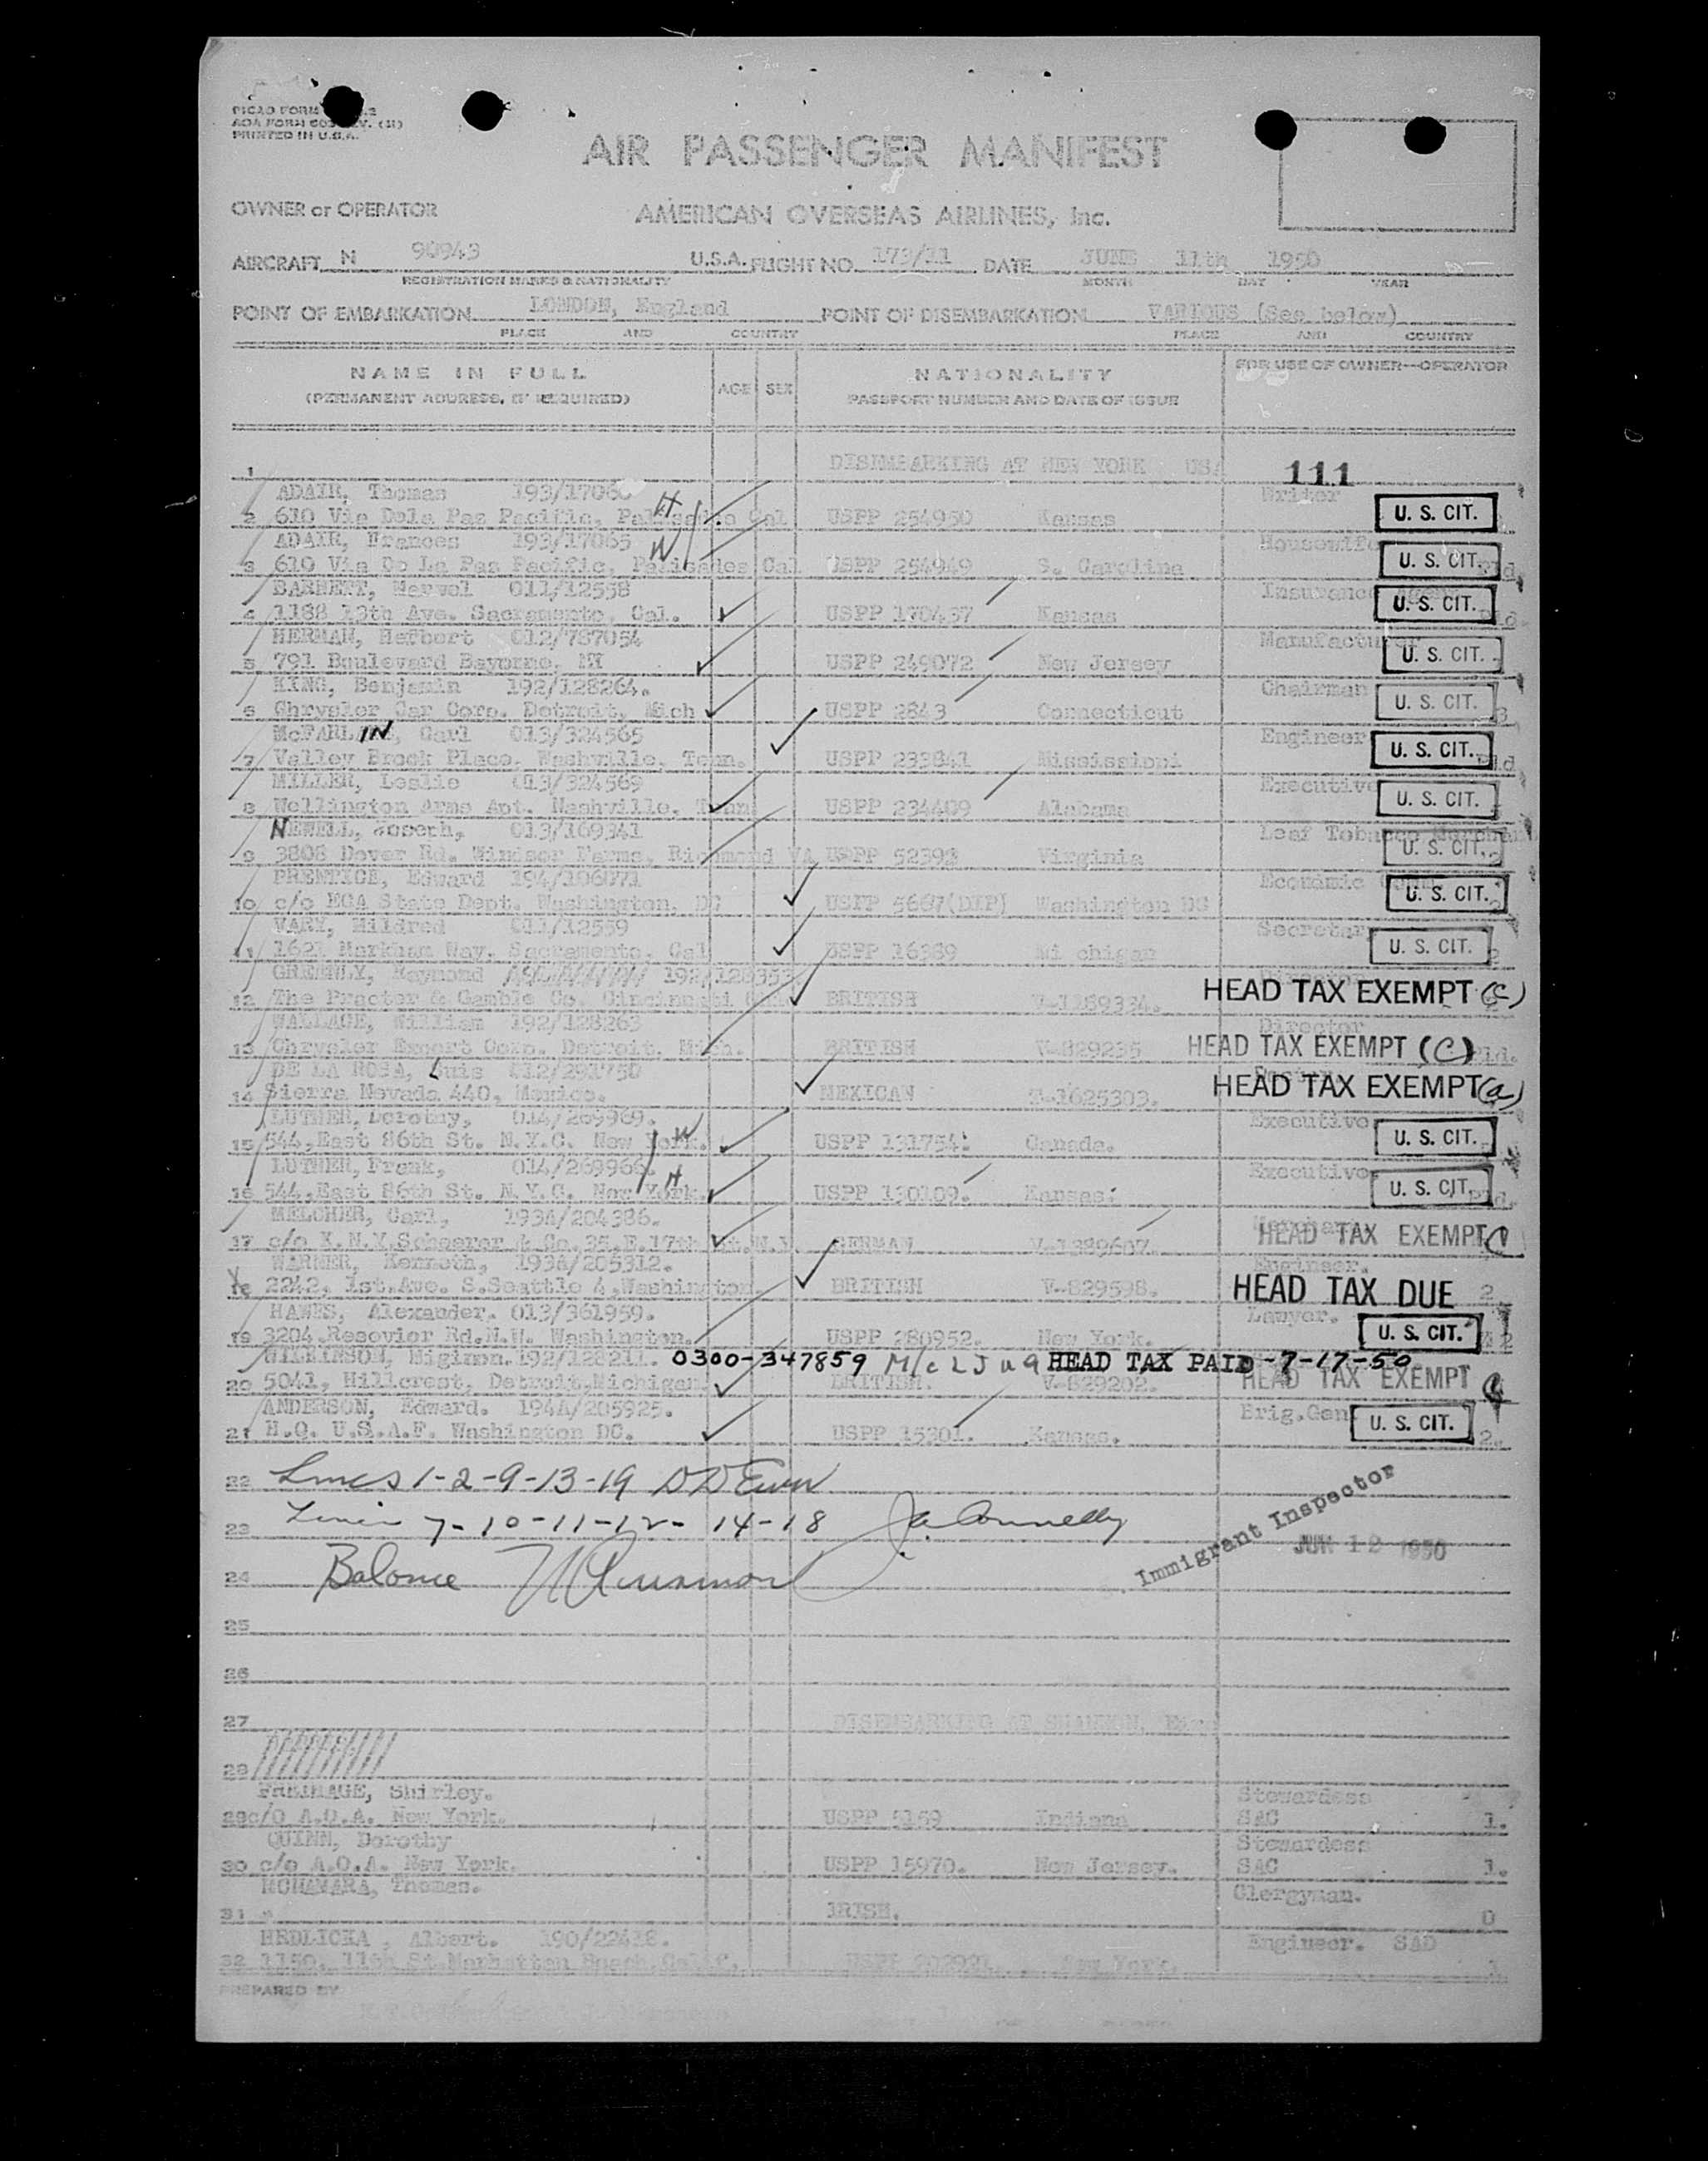 PICAO FORM
AOA FORM
PRINTED IN U.S.A.
AIR PASSENGER MANIFEST
OWNER or OPERATOR AMERICAN OVERSEAS AIRLINES, Inc.
AIRCRAFT N 90943 U.S.A. FLIGHT NO. 173/11 DATE JUNE 11th 1950
REGISTRATION MARKS & NATIONALITY MONTH DAY YEAR
POINT OF EMBARKATION LONDON, England POINT OF DISEMBARKATION VARIOUS (See below)
PLACE AND COUNTRY PLACE AND COUNTRY
NAME IN FULL AGE SEX NATIONALITY FOR USE OF OWNER—OPERATOR
(PERMANENT ADDRESS, IF REQUIRED) PASSPORT NUMBER AND DATE OF ISSUE
1 DISEMBARKING AT NEW YORK USA 111
ADAIR, Thomas 193/1706 H Writer
2 610 Via Dela Paz Pacific, Palisades Cal USPP 254950 Kansas U. S. CIT.
ADAIR, Frances 193/17065 W Housewife
3 610 Via De La Paz Pacific, Palisades Cal USPP 254949 S. Carolina U. S. CIT.
BARRETT, 011/12558 Insurance
4 1188 13th Ave. Sacramento, Cal. USPP 170437 Kansas U. S. CIT.
HERMAN, Herbert 012/787054 Manufacturer
5 791 Boulevard Bayonne, USPP 249072 New Jersey U. S. CIT.
KING, Benjamin 192/128264. Chairman
6 Chrysler Car Corp. Detroit, Mich USPP 2843 Connecticut U. S. CIT.
McFARLIN, Carl 013/324565 Engineer
7 Valley Brook Place. Nashville, Tenn. USPP 233841 Mississippi U. S. CIT.
MILLER, Leslie 013/324569 Executive
8 Wellington Arms Apt. Nashville, Tenn USPP 234409 Alabama U. S. CIT.
NEWELL, Joseph, 013/169341 Leaf Tobacco
9 3808 Dover Rd. Windsor Farms, Richmond VA USPP 52392 Virginia U. S. CIT.
PRENTICE, Edward 194/106071 Economic
10 c/o ECA State Dept. Washington, DC USPP 5687(DIP) Washington DC U. S. CIT.
VARY, Mildred 011/12559 Secretary
11 1621 Markham Way. Sacramento, Cal USPP 16389 Mi chigan U. S. CIT.
GREENLY, Raymond 192/128353 Director
12 The Procter & Gamble Co. Cincinnati BRITISH V-1189334. HEAD TAX EXEMPT (c)
WALLACE, William 192/128263 Director
13 Chrysler Export Corp. Detroit, Mich. BRITISH V-829235 HEAD TAX EXEMPT (C)
DE LA ROSA, Luis 012/291750
14 Sierra Nevada 440, Mexico. MEXICAN V-1625303. HEAD TAX EXEMPT (a)
LUTHER, Dorothy, 014/269969. W Executive
15 544,East 86th St. N.Y.C. New York. USPP 131754. Canada. U. S. CIT.
LUTHER, Frank, 014/269966. H Executive
16 544,East 86th St. N.Y.C. New York. USPP 130109. Kansas. U. S. CIT.
MELCHER, Carl, 193A/204386. Merchant
17 c/o K.N.Y.Scheerer & Co.35,E.17th St.N.Y GERMAN V-1389607. HEAD TAX EXEMPT
WARNER, Kenneth, 193A/205312. Engineer.
18 2242, 1st.Ave. S.Seattle 4,Washington. BRITISH V-829598. HEAD TAX DUE 2.
HAWES, Alexander. 013/361959. Lawyer.
19 3204,Resevior Rd.N.W. Washington. USPP 280952. New York. U. S. CIT.
192/128211. 0300-347859 HEAD TAX PAID -7-17-50
20 5041, Hillcrest, Detroit,Michigan. BRITISH. V-829202. HEAD TAX EXEMPT
ANDERSON, Edward. 194A/205925. Brig.Gen
21 H.Q. U.S.A.F. Washington DC. USPP 15301. Kansas. U. S. CIT. 2.
22 Lines 1-2-9-13-19
23 Lines 7-10-11-12-14-18 J.A. Connelly
Immigrant Inspector
JUN 12 1950
24 Balance
25
26
27 DISEMBARKING AT SHANNON,
28
Shirley. Stewardess
29 c/o A.O.A. New York. USPP 5169 Indiana SAC 1.
QUINN, Dorothy Stewardess
30 c/o A.O.A. New York. USPP 15970. New Jersey. SAC 1.
MCNAMARA, Thomas. Clergyman.
31 IRISH. 0
HRDLICKA, Albert. 190/22438. Engineer. SAD
32 1150, 11th St.Manhattan Beach,Calif. USPP 202921. New York. 1
PREPARED BY